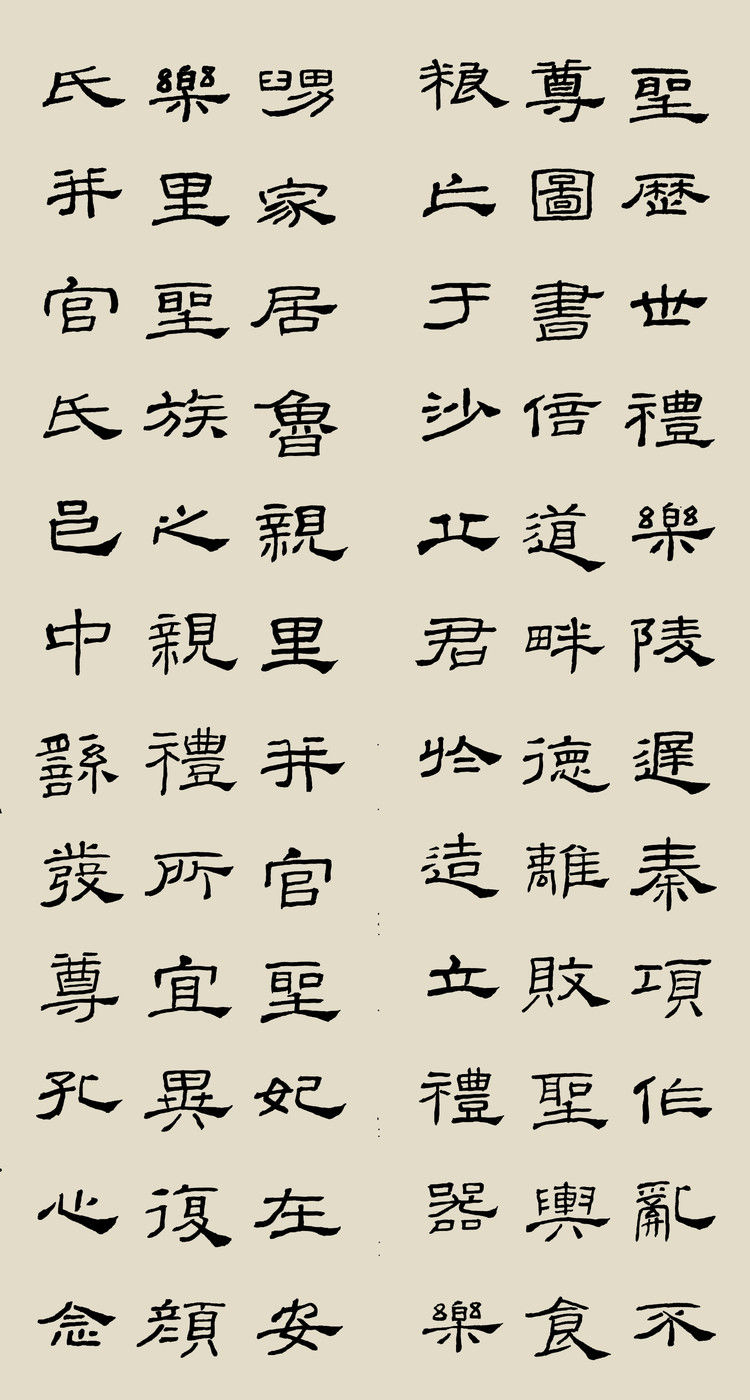 舅家居魯親里并官聖妃在安
樂里聖族之親禮所宜異復顏
氏并官氏邑中繇發尊孔心念
聖歷世禮樂陵遲秦項作亂不
尊圖書倍道畔德離敗聖輿食
粮亡于沙丘君於造立禮器樂